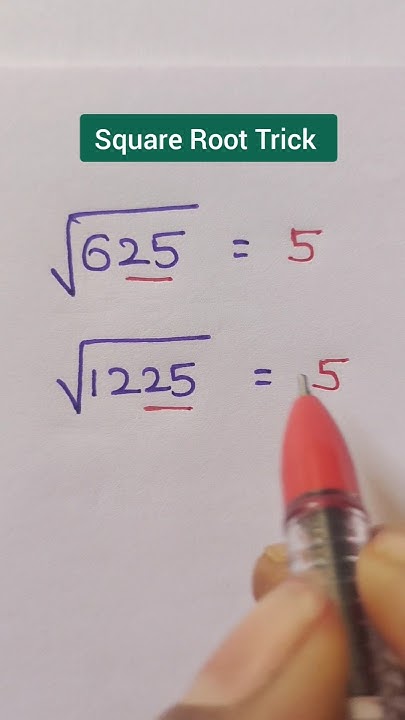 Square Root Trick
√625 = 5
√1225 = 5